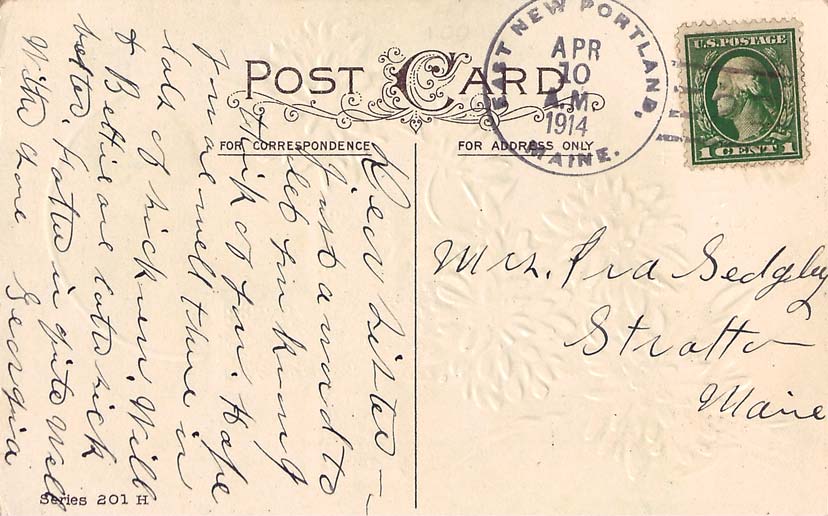 POST CARD
EAST NEW PORTLAND, MAINE.
APR
10
A.M.
1914
U.S. POSTAGE
1 CENT 1
FOR CORRESPONDENCE
FOR ADDRESS ONLY
Dear Sister –
Just a word to
let you know I
think of you. Hope
you are well there is
lots of sickness. Will
& Bertie are sick
better. Hattie is quite well
With love Georgia
Mrs. Ira Sedgley
Stratton
Maine
Series 201 H